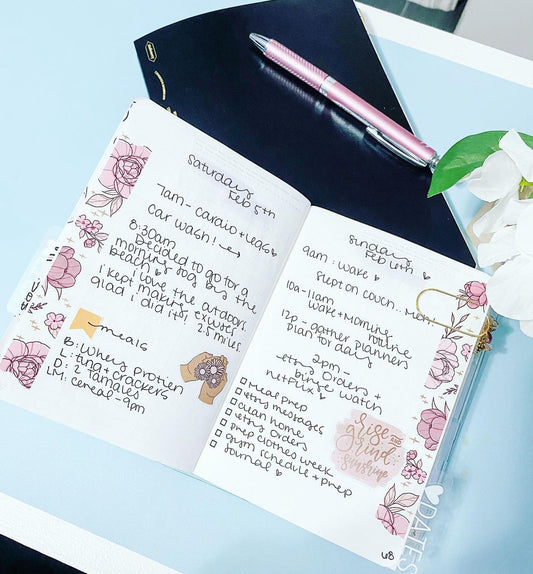 Saturday
Feb 5th
7am - Cardio + Legs
Car wash!
8:30am
Decided to go for a
morning jog by the
beach
I love the outdoors
I kept making excuses
glad I did it! 2.5 miles
meals
B: Whey Protien
L: tuna + crackers
D: 2 Tamales
LM: cereal - 9pm
Sunday
Feb 6th
9am: Wake
slept on couch.. Meh.
10a-11am
Wake + Morning
routine
12p - gather planners
Plan for day
2pm -
etsy Orders +
netflix binge watch
Meal prep
etsy messages
clean home
etsy orders
prep clothes week
gym schedule + prep
Journal
rise
AND
grind
sunshine
48
DATES